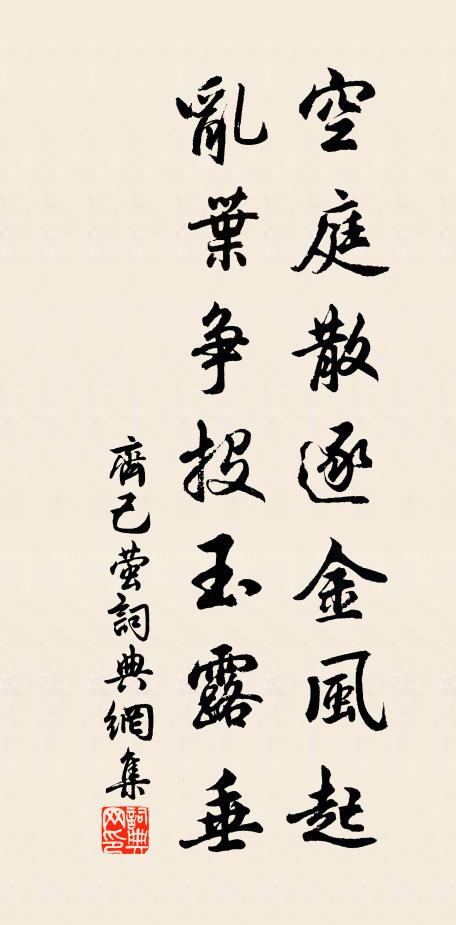 空庭散逐金風起
亂葉争投玉露垂
齊己螢詞典網集
詞典網印